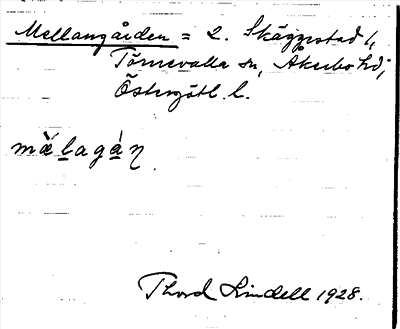 Mellangården = 2. Skäggestad 1,
Törnevalla sn, Åkerbo hd,
Östergötl. l.
mä̀lagàn
Thord Lindell 1928.